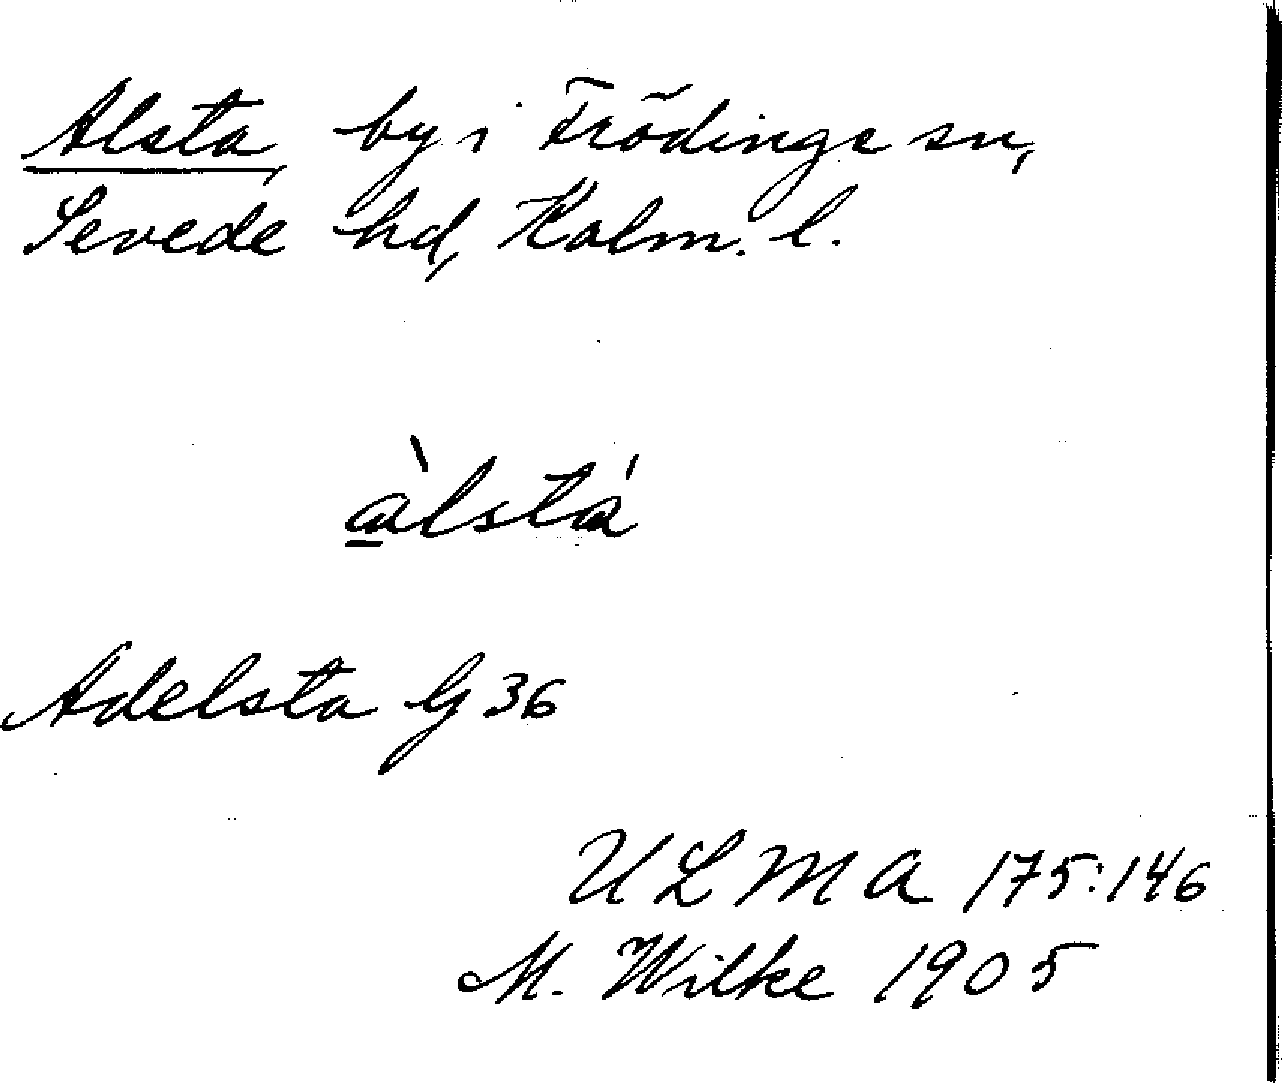 Alsta, by i Frödinge sn,
Sevede hd, Kalm. l.
å̲̀lstá
Adelsta G 36
ULMA 175:146
M. Wilke 1905